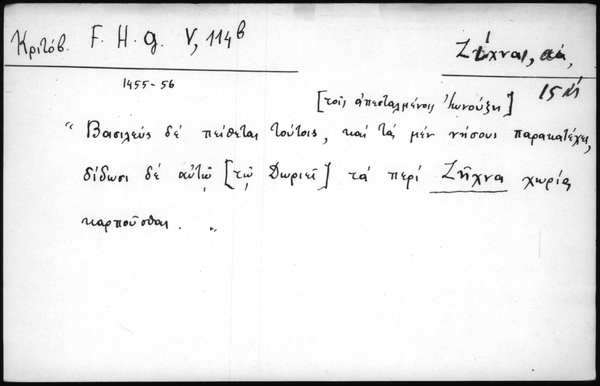 Κριτόβ. F. H. G. V, 114b
Ζίχναι, τά,
1455-56
15 Μ
[τοῖς ἀπεσταλμένοις Ἰωνούζῃ]
" Βασιλεύς δέ πείθεται τούτοις, καί τάς μέν νήσους παρακατέχει,
δίδωσι δέ αὐτῷ [τῷ Δωριεῖ] τά περί Ζῆχνα χωρία
καρποῦσθαι. "